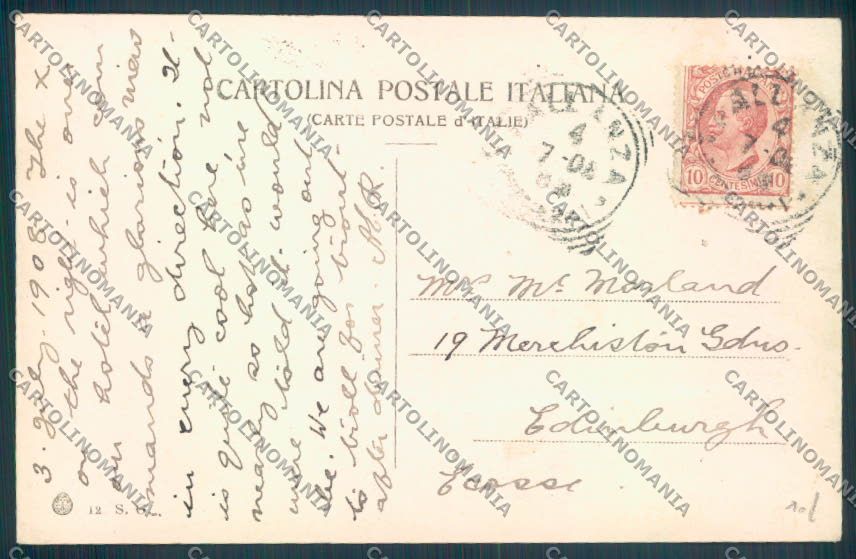 CARTOLINA POSTALE ITALIANA
(CARTE POSTALE d'ITALIE)
3 July 1908. The x
on the right is our
hotel which com
mands a glorious view
in every direction. It
is quite cool here not
nearly so hot as we
were told it would
be. We are going out
to
after dinner.
Mc Morland
19 Merchiston Gdns.
Edinburgh
Ecosse
POSTE
10 CENTESIMI 10
PALLANZA
4
7-08
PALLANZA
4
7-08
12
CARTOLINOMANIA